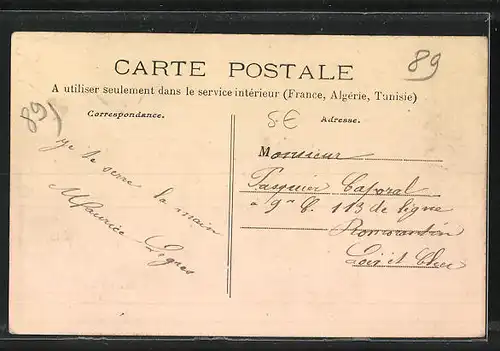 89
CARTE POSTALE
A utiliser seulement dans le service intérieur (France, Algérie, Tunisie)
89
5€
Correspondance.
Adresse.
Je te serre la main
Maurice
Monsieur
Pasquier Caporal
à 9e C. 113 de ligne
Romorantin
Loir et Cher